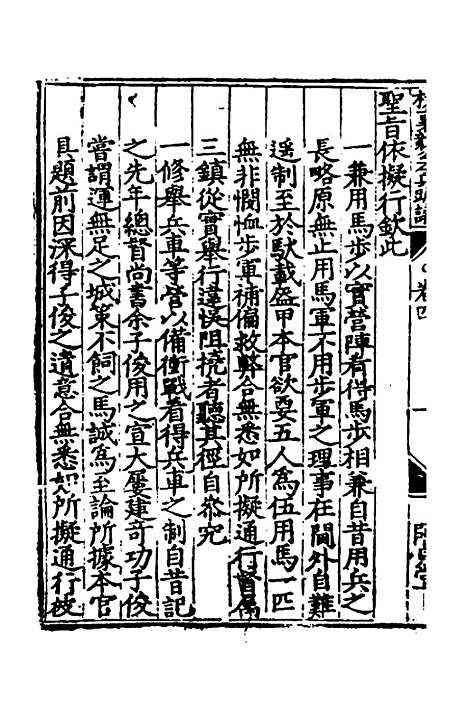 卷四
聖旨依擬行欽此
一兼用馬步以實營陣看得馬步相兼自昔用兵之
長略原無止用馬軍不用步軍之理事在閫外自難
遥制至於馱載盔甲本官欲要五人為伍用馬一匹
無非憫恤步軍補偏救弊合無悉如所擬通行督屬
三鎮從實舉行違悞阻撓者聽其徑自叅究
一修舉兵車等營以備衝戰看得兵車之制自昔記
之先年總督尚書余子俊用之宣大屢建奇功子俊
嘗謂運無足之城策不飼之馬誠為至論所據本官
具題前因深得子俊之遺意合無悉如所擬通行被